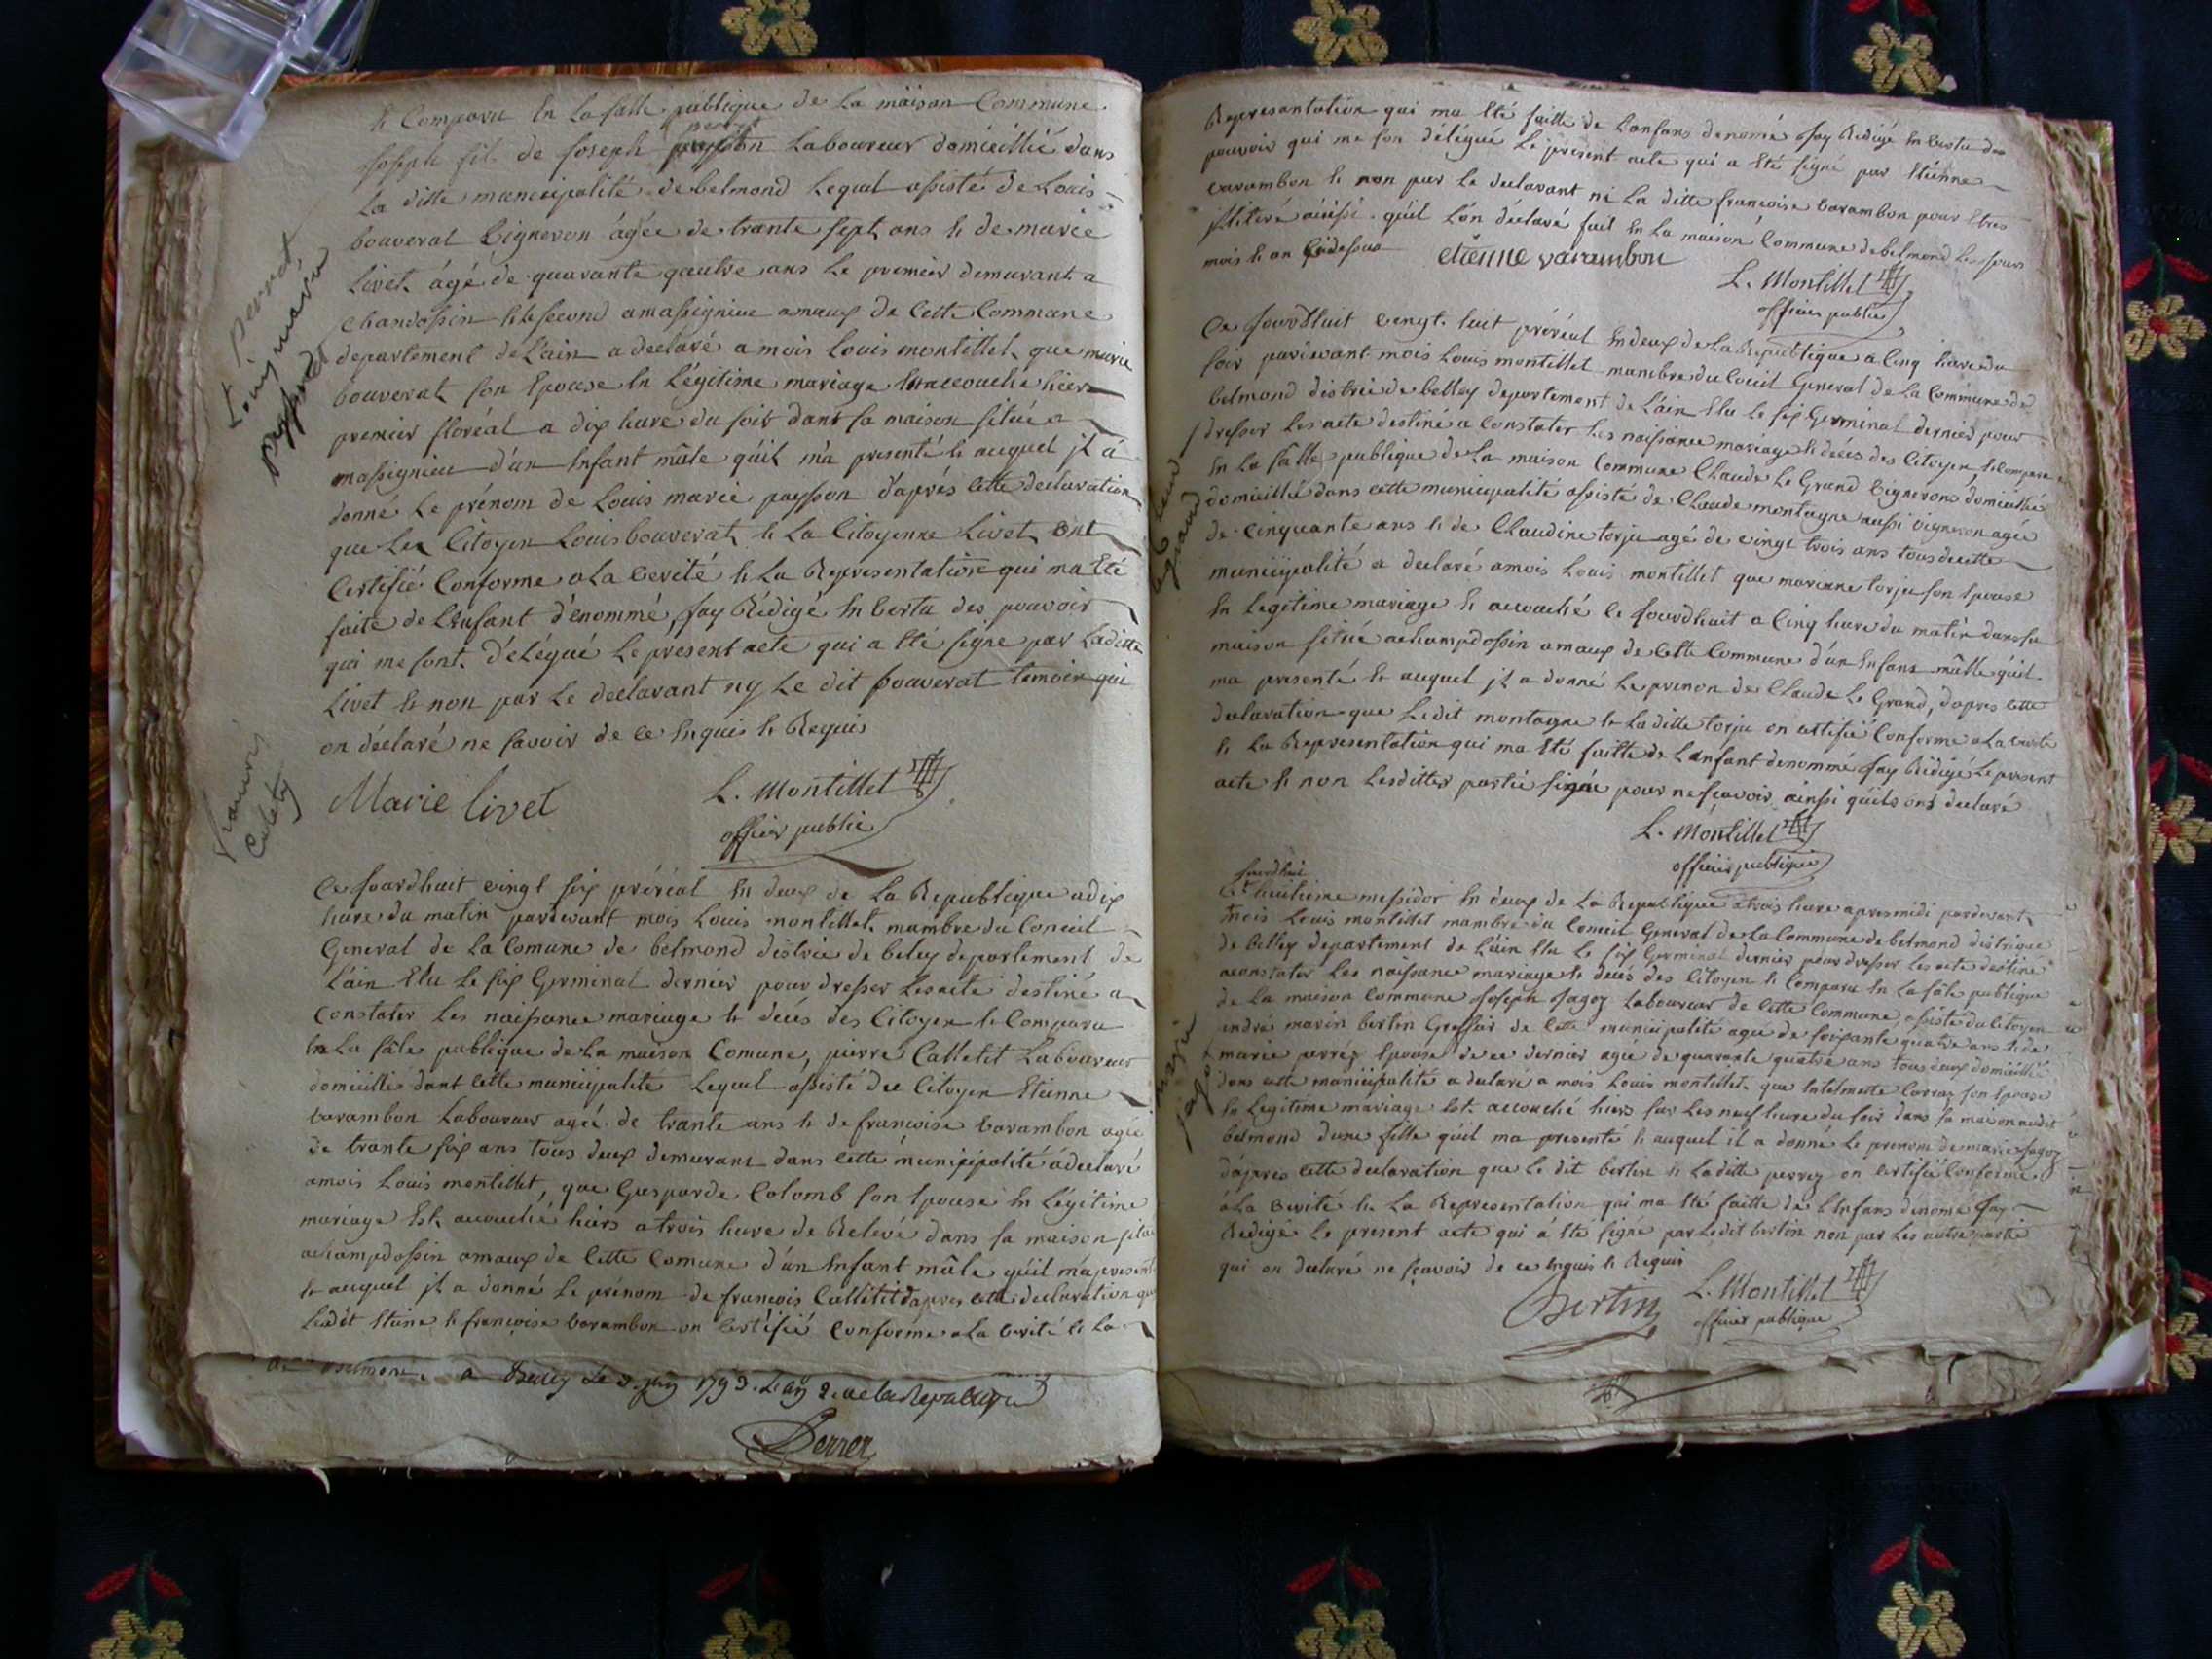 & Comparu En La salle publique de La maison Commune
Joseph fils de Joseph Laboureur domicillié dans
La ditte municipalité de belmond Lequel assisté de Louis
bouverat vigneron agée de trante sept ans & de marie
Livet âgé de quarante quatre ans Le premier demurant a
Chandossin & le second a massignieu amaux de Cette Commune
departement de L'ain a declaré a mois Louis montillet que marie
bouverat son Epouse En Légitime mariage Est accouché hier
premier floréal a dix heure du soir dans sa maison située a
massignieu d'un Enfant mâle qu'il m'a presenté & auquel jl a
donné Le prénom de Louis marie paysson d'aprés cette declaration
que Les Citoyen Louis bouverat & La Citoyenne Livet ont
Certifié Conforme a La verité & La Representation qui ma Eté
faite de L'Enfant dénommé, Jay Rédigé En vertu des pouvoir
qui me sont déLégué Le present acte qui a Eté signe par Laditte
Livet & non par Le declarant ny Le dit bouverat temoin qui
on déclaré ne savoir de ce Enquis & Requis
Marie livet L. Montillet
officier public
Louis marie
françois
Caletit
Ce Jourdhuit vingt six préréal En deux de La Republique a dix
heure du matin pardevant mois Louis montillet mambre du Conceil
General de La Comune de belmond distric de beley departement de
L'ain Elu Le six Germinal dernier pour dresser Les acte destiné a
Constater Les naissance mariage & décés des Citoyen & Comparu
En La sâle publique de La maison Comune, pierre Calletit Laboureur
domicillié dant Cette municipalité Lequel assisté du Citoyen Etienne
varambon Laboureur ageé de trante ans & de francoise varambon agée
de trante six ans tous deux demurant dans Cette municipalité a declaré
amois Louis montillet, que Gasparde Colomb son Epouse En Légitime
mariage Est accouché hiers a trois heure de Relevé dans sa maison
achampdossin amaux de Cette Comune d'un Enfant mâle qu'il m'a presenté
& auquel jl a donné Le prénom de francois Calletit dapres cette declaration que
Ledit & françoise varambon on Certifié Conforme a La verité & La
a Belley Le 1793. L'an 2. de la Republique
Ferrer
Representation qui ma Eté faitte de Lanfans denomé Jay Redigé En vertu des
pouvoir qui me son délégué Le present acte qui a Eté signé par Etienne
varambon & non par Le declarant ni La ditte francoise varambon pour Etres
jlliteré ainsi qu'il L'on déclaré fait En La maison Commune de belmond Les jour
mois & an Cydessus etienne varambon
L. Montillet
officier public
Ce Jourdhuit vingt huit préréal En deux de La Republique a Cinq heure du
soir pardevant mois Louis montillet mambre du Conceil General de La Commune de
belmond distric de belley departement de L'ain Elu Le six Germinal dernier pour
dresser Les acte destiné a Constater Les naissance mariage & décés des Citoyen & Comparu
En La sâlle publique de La maison Commune Claude Le Grand vigneron domicillié
domicillié dans cette municipalité assisté de Claude montagne aussi vigneron agée
de Cinquante ans & de Claudine torju agé de vingt trois ans tous de cette
municipalité a declaré a mois Louis montillet que marianne torju son Epouse
En Legitime mariage & accouché Ce Jourdhuit a Cinq heure du matin dans sa
maison située achampdossin amaux de Cette Commune d'un Enfans mâlle qu'il
ma presenté & auquel jl a donné Le prenon de Claude Le Grand, dapres cette
declaration que Ledit montagne & La ditte torju on certifié Conforme a La verité
& La Representation qui ma Eté faitte de Lanfant denommé Jay Rédigé Le present
acte & non Lesdittes partie signée pour ne scavoir ainssi qu'ils ont declaré
L. Montillet
officier publique
Le Grand
Jourdhui
Ce huitieme messidor En deux de La Republique a trois heure apres midi pardevant
mois Louis montillet mambre du Conceil General de La Commune de belmond distrique
de belley departement de L'ain Elu Le six Germinal dernier pour dresser Les acte destiné
aconstater Les naissance mariage & décés des Citoyen & Comparu En La sâle publique
de La maison Commune Joseph Jagoz Laboureur de Cette Commune, assisté du Citoyen
andré marin bertin Greffier de Cette municipalité agée de soixante quatre ans & de
marie perrez Epouse de ce dernier agée de quarante quatre ans tous deux domicillié
dans cette municipalité a declaré a mois Louis montillet que son Epouse
En Legitime mariage Est accouché hiers sur Les neuf heure du soir dans sa maison audit
belmond dune fille qu'il ma presenté & auquel il a donné Le prenom de marie Jagoz
dapres cette declaration que Le dit bertin & La ditte perrez on certifié Conforme
a La verité & La Representation qui ma Eté faitte de L'Enfans dénomé Jay
Redigé Le present acte qui á Eté signé par Ledit bertin non par Les autre partie
qui on declaré ne scavoir de ce Enquis & Requis
Bertin L. Montillet
officier publique
marie
jagoz